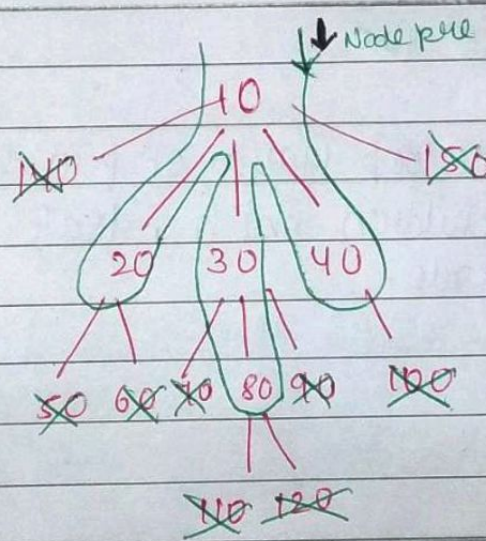 Node pre
10
140 150
20 30 40
50 60 70 80 90 100
110 120